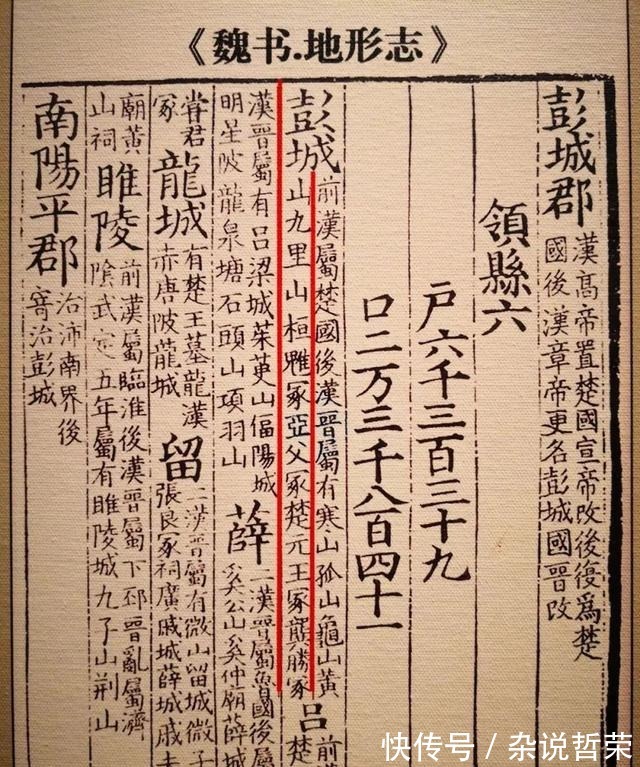 《魏书.地形志》
彭城郡
漢高帝置楚國宣帝改後復爲楚
國後漢章帝更名彭城國晉改
領縣六
戶六千三百三十九
口二万三千八百四十一
彭城
前漢屬楚國後漢晉屬有寒山孤山龜山黃
山九里山桓魋冢亞父冢楚元王冢龔勝冢
呂
前
楚
漢晉屬有呂梁城茱萸山偪陽城
明星陂龍泉塘石頭山項羽山
薛
二漢晉屬魯國後屬
奚公山奚仲廟薛城
嘗君
冢
龍城
有楚王墓龍漢
赤唐陂龍城
留
二漢晉屬有微山留城微子
張良冢祠廣戚城薛城戚
廟黃
山祠
睢陵
前漢屬臨淮後漢晉屬下邳晉亂屬濟
陰武定五年屬有睢陵城九子山荆山
南陽平郡
治沛南界後
寄治彭城
快传号／杂说哲荣